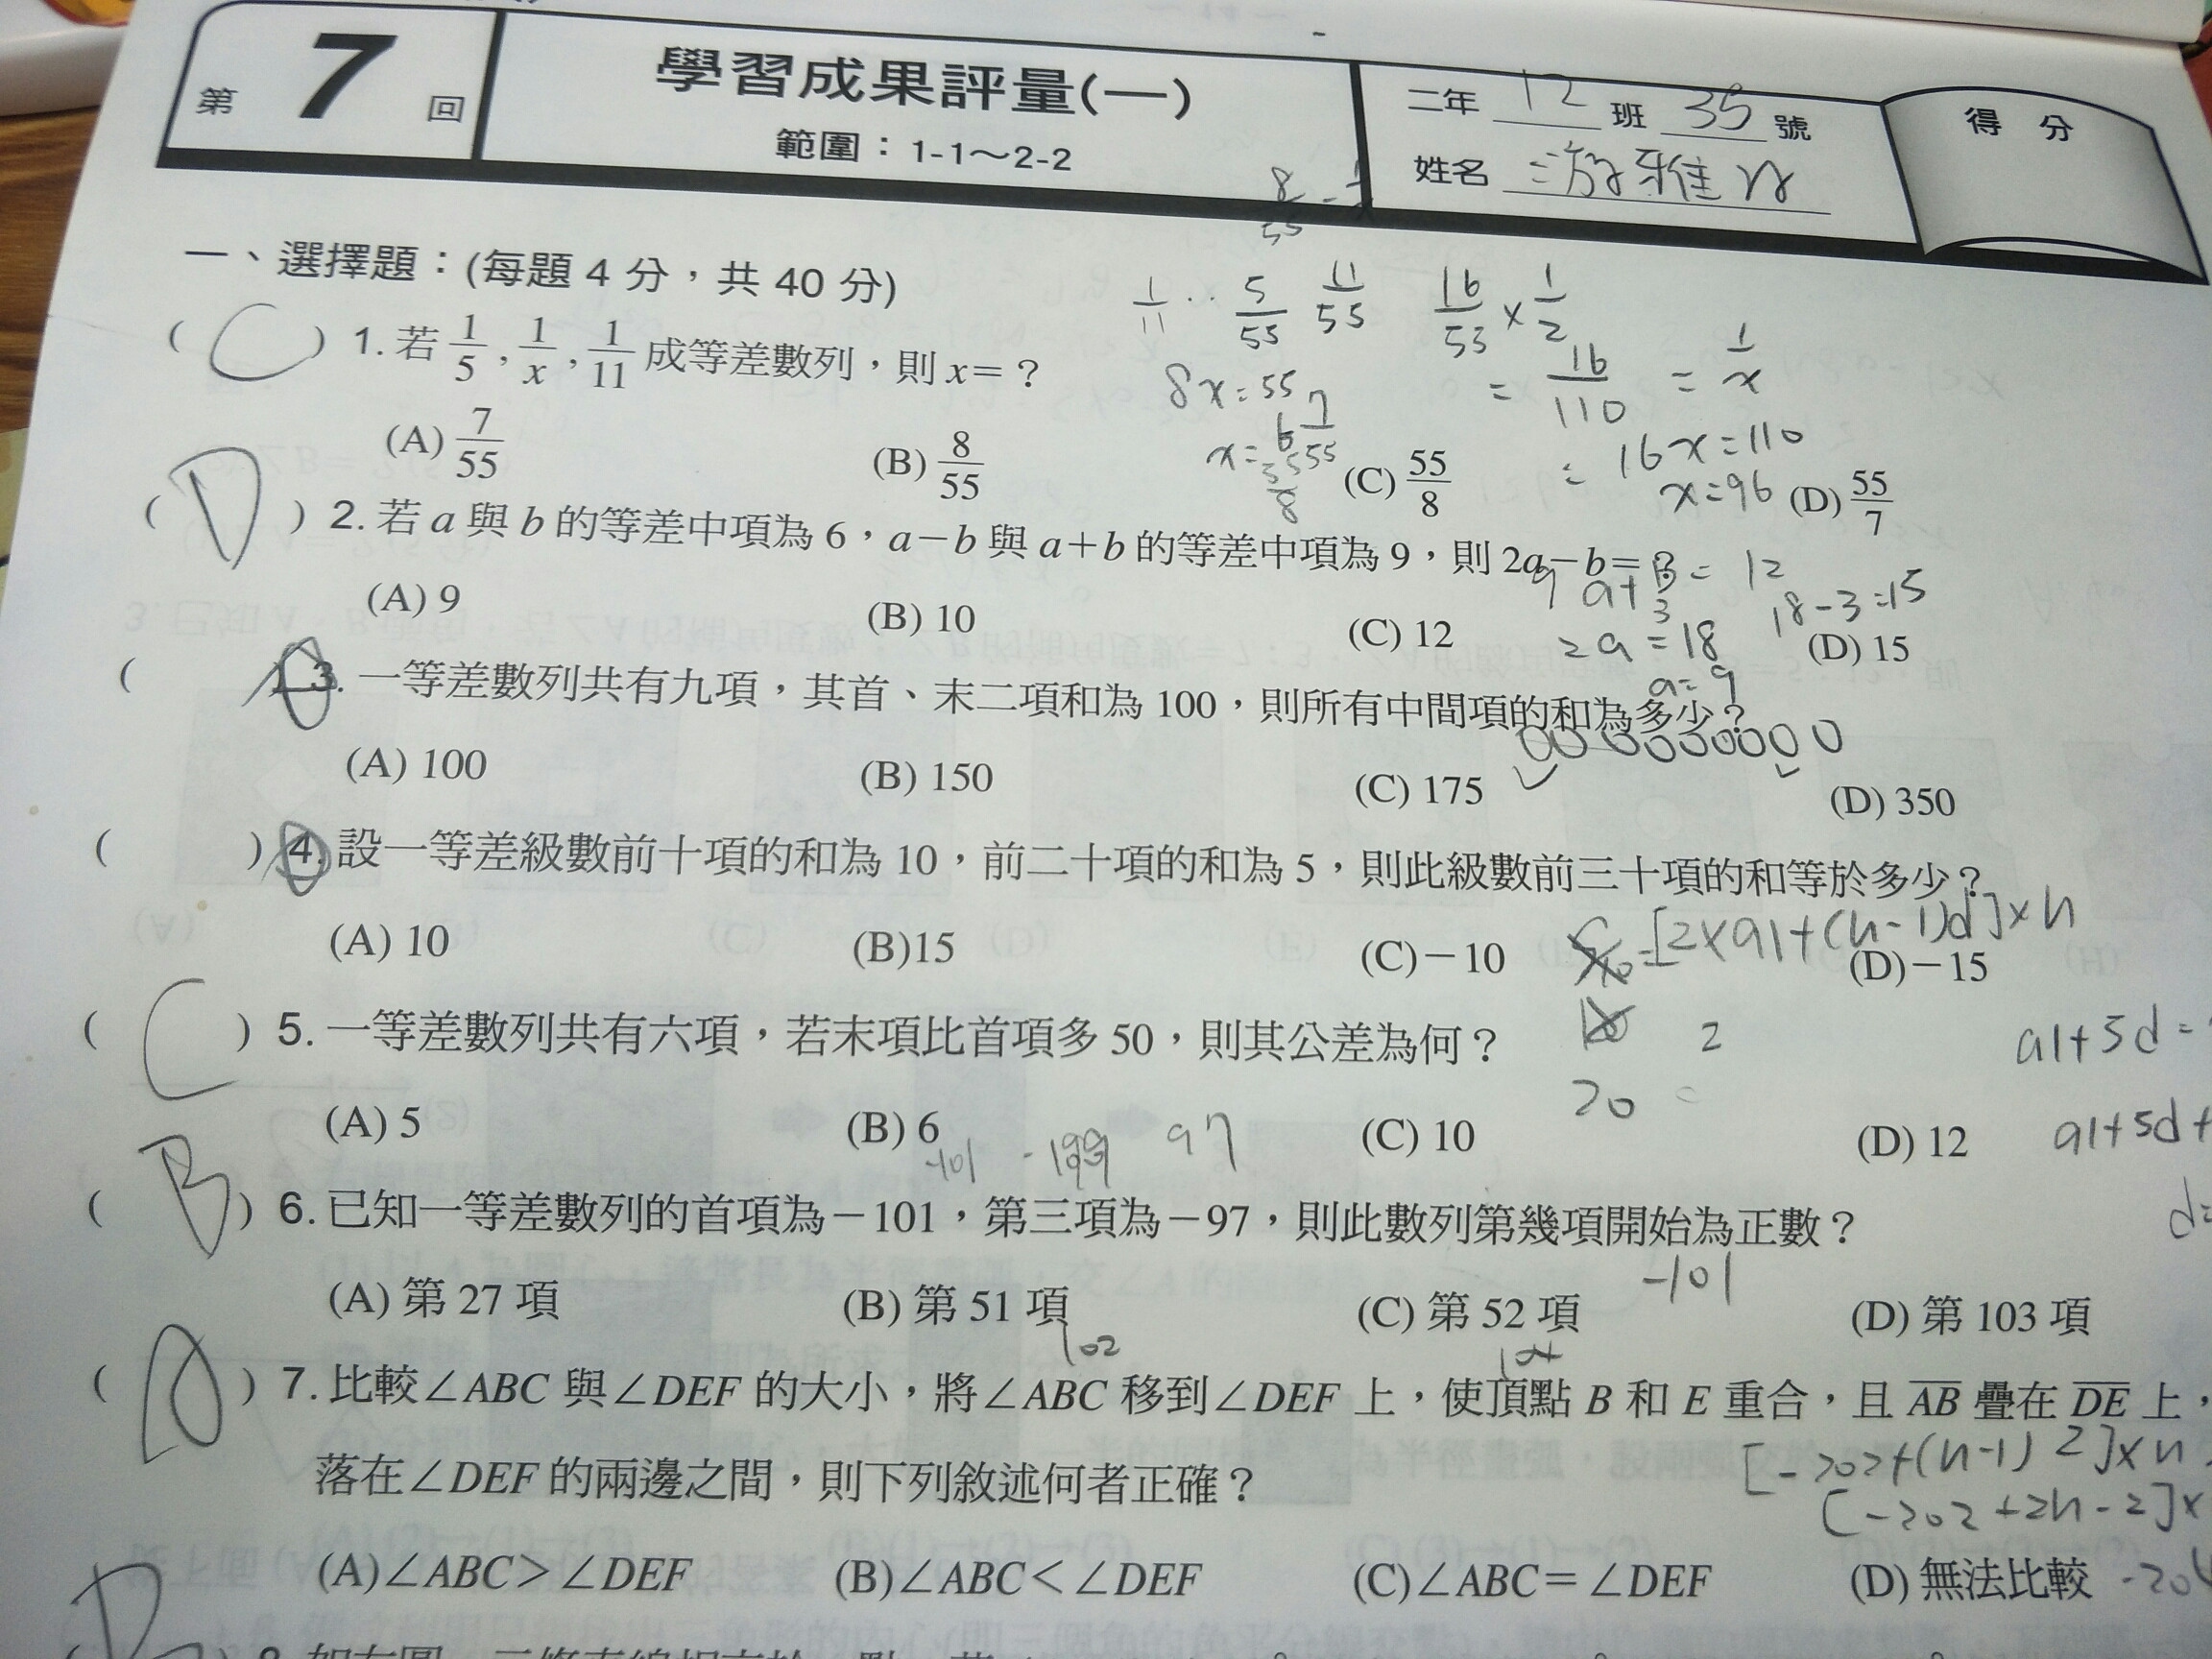 第 7 回
學習成果評量(一)
範圍：1-1～2-2
二年 12 班 35 號
姓名 游雅
得 分
一、選擇題：(每題 4 分，共 40 分)
( C ) 1. 若 1/5 , 1/x , 1/11 成等差數列，則 x=？
(A) 7/55 (B) 8/55 (C) 55/8 (D) 55/7
1/11 5/55 11/55 16/55 × 1/2
8x=55 = 16/110 = 1/x
16x=110
x=96
( D ) 2. 若 a 與 b 的等差中項為 6，a－b 與 a＋b 的等差中項為 9，則 2a－b=
(A) 9 (B) 10 (C) 12 (D) 15
a+B= 12
18-3=15
2a=18
a=9
( ) 3. 一等差數列共有九項，其首、末二項和為 100，則所有中間項的和為多少？
(A) 100 (B) 150 (C) 175 (D) 350
( ) 4. 設一等差級數前十項的和為 10，前二十項的和為 5，則此級數前三十項的和等於多少？
(A) 10 (B)15 (C)－10 (D)－15
=[2×a1+(n-1)d]×n
2
20
( C ) 5. 一等差數列共有六項，若末項比首項多 50，則其公差為何？
(A) 5 (B) 6 (C) 10 (D) 12
a1+5d=
a1+5d+
d=
-101 97
( B ) 6. 已知一等差數列的首項為－101，第三項為－97，則此數列第幾項開始為正數？
-101
(A) 第 27 項 (B) 第 51 項 (C) 第 52 項 (D) 第 103 項
102 104
( A ) 7. 比較∠ABC 與∠DEF 的大小，將∠ABC 移到∠DEF 上，使頂點 B 和 E 重合，且 AB 疊在 DE 上，
落在∠DEF 的兩邊之間，則下列敘述何者正確？
[-202+(n-1) 2]×n
[-202+2n-2]×
(A)∠ABC＞∠DEF (B)∠ABC＜∠DEF (C)∠ABC＝∠DEF (D) 無法比較
-204